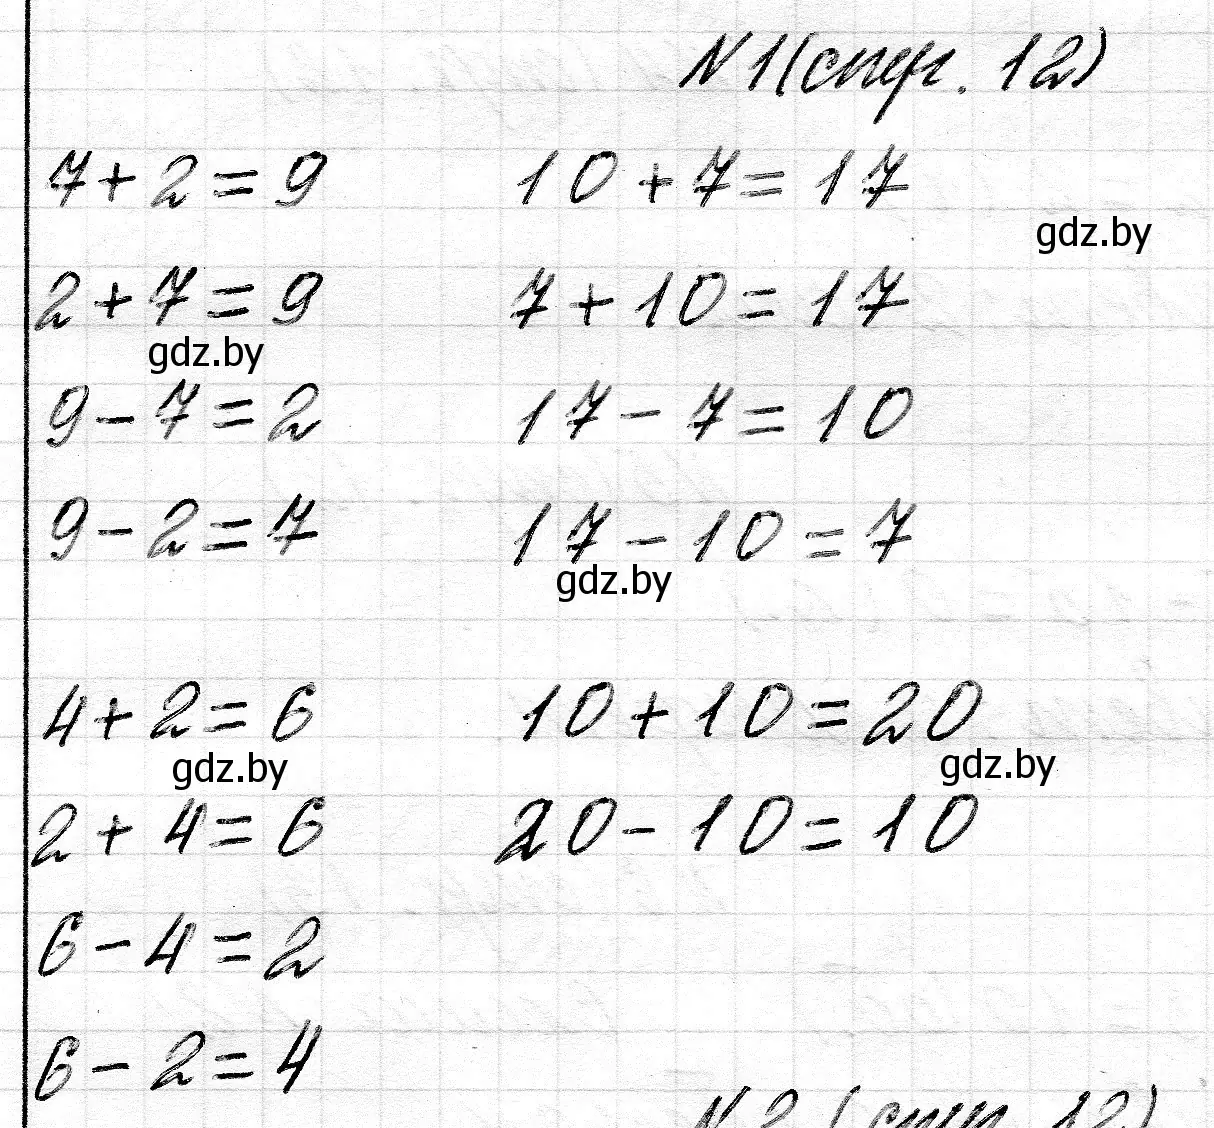 №1(стр. 12)
7+2=9 10+7=17
gdz.by
2+7=9 7+10=17
gdz.by
9-7=2 17-7=10
9-2=7 17-10=7
gdz.by
4+2=6 10+10=20
gdz.by gdz.by
2+4=6 20-10=10
6-4=2
6-2=4
№2 (стр. 12)